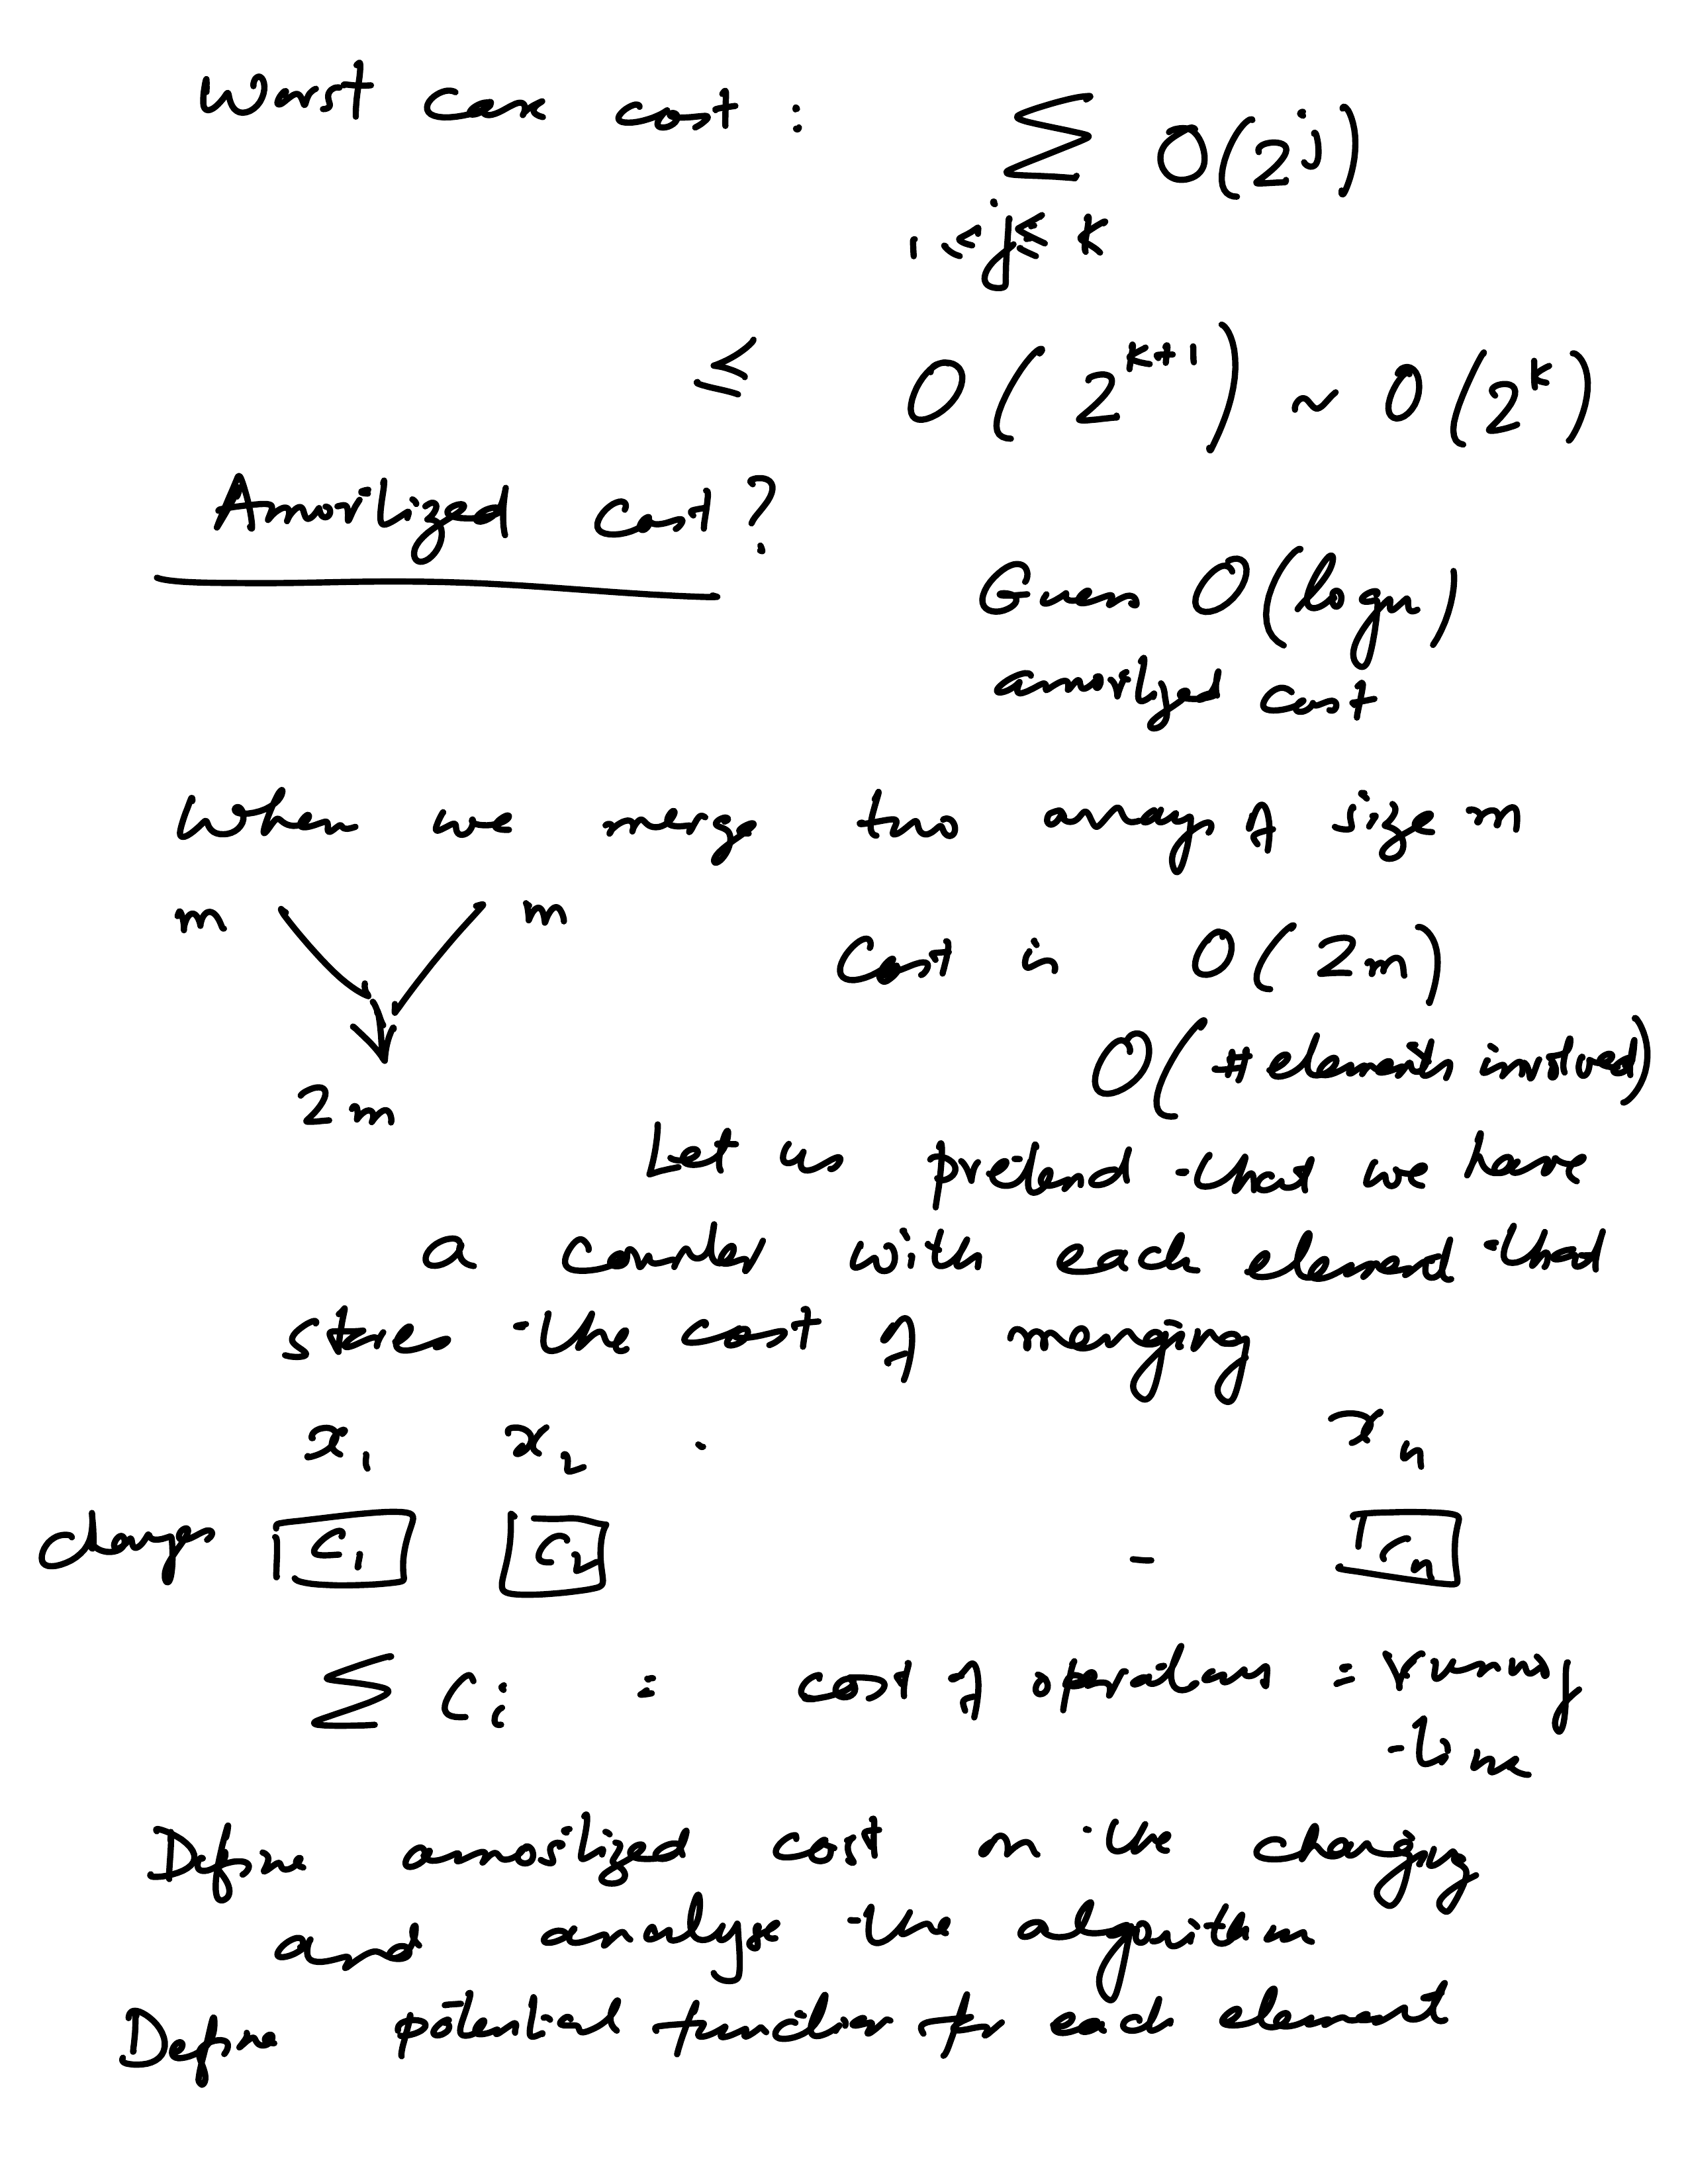 Worst case cost : ∑ O(2^j)
1 ≤ j ≤ k
≤ O(2^{k+1}) ~ O(2^k)
Amortized Cost?
Guess O(log n)
amortized cost
When we merge two arrays of size m
m m Cost is O(2m)
O(# elements involved)
2m
Let us pretend that we have
a counter with each element that
stores the cost of merging
x₁ x₂ . xₙ
charge C₁ C₂ - Cₙ
∑ Cᵢ = cost of operations = running
time
Define amortized cost on the charging
and analyse the algorithm
Define potential function for each element